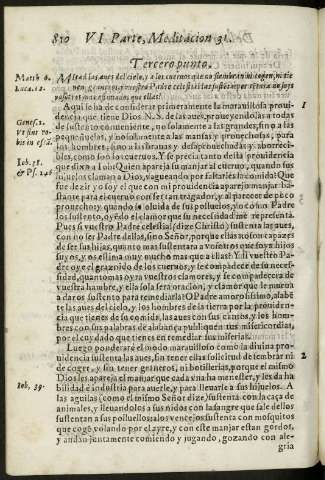 810 VI Parte, Meditacion 31.
Tercero punto.
Matth. 6.
Luca. 12.
Mirad las aues del cielo, y a los cueruos que no siembran ni cogen, ni tie
nen graneros, y vuestro Padre celestial las
vosotros mas estimados que ellas?
1
Aqui se ha de considerar primeramente la marauillosa proui
dencia que tiene Dios N. S. de las aues, proueyendolas a todas
Genes. 1.
de sustento conueniente, no solamente a las grandes, sino a las
pequeñuelas, y no solamente a las mansas y prouechosas, para
los hombres, sino tambien a las
bles, como son los cueruos. Y se precia tanto desta prouidencia
Iob. 38.
& Ps. 146
que dixo a Iob: Quien apareja su manjar al cueruo, quando sus
hijuelos claman a Dios, vagueando por faltarles la comida? Que
fue dezir yo soy el que con mi prouidencia aparejo manjar bas-
tante para el cueruo con ser tan tragador, y al parecer de poco
prouecho: y quando la oluida de sus polluelos, yo como Padre
los sustento, oyendo el clamor que su necessidad me representa.
Pues si vuestro Padre celestial (dize Christo) sustenta las aues,
con no ser Padre dellas, sino Señor, porque ellas no son capazes
de ser sus hijas, quanto mas sustentara a vosotros que soys hijos
suyos, y os estima mucho mas que a ellas? Y si vuestro Pa-
dre oye el graznido de los cueruos, y se compadece de su neces-
sidad, quanto mas oyra vuestros clamores, y se compadecera de
vuestra hambre, y ella sola sera oracion, y clamor que le mueua
a daros sustento para remediarla? O Padre amorosissimo, alabẽ
te las aues del cielo, y los hombres de la tierra por la prouiden-
cia que tienes de su comida, las aues con sus cantos, y los hom-
bres con sus palabras de alabança publiquen tus misericordias,
por el cuydado que tienes en remediar sus miserias.
2
Luego ponderarè el modo marauilloso como la diuina pro-
uidencia sustenta las aues, sin tener ellas solicitud de sembrar ni
de coger, y sin tener graneros, ni botillerias, porque el mismo
Dios les apareja el manjar que cada vna ha menester, y les da ha-
bilidad è industria para auerle, y para lleuarle a sus hijuelos. A
Iob. 39.
las aguilas (como el mismo Señor dize) sustenta con la caça de
animales, y lleuandolos a sus nidos con la sangre que sale dellos
sustentan a sus polluelos: a los vencejos sustenta con mosquitos
que cogẽ volando por el ayre, y con este manjar estan gordos,
y andan juntamente comiendo y jugando, gozando con ale-
gria